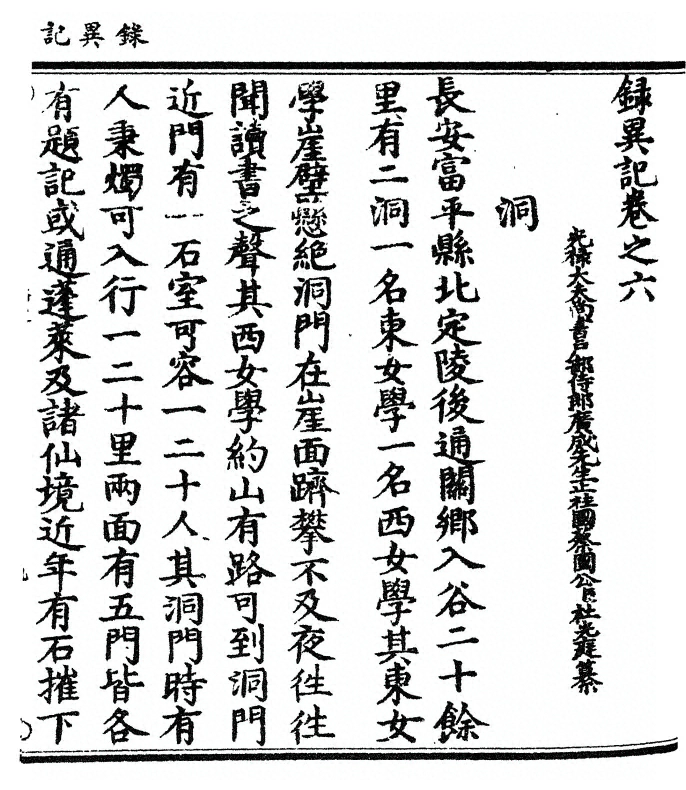 錄異記
錄異記卷之六
光祿大夫尚書戶部侍郎廣成先生上柱國蔡國公臣杜光庭纂
洞
長安富平縣北定陵後通關鄉入谷二十餘
里有二洞一名東女學一名西女學其東女
學崖壁懸絕洞門在崖面躋攀不及夜往往
聞讀書之聲其西女學約山有路可到洞門
近門有一石室可容一二十人其洞門時有
人秉燭可入行一二十里兩面有五門皆各
有題記或通蓬萊及諸仙境近年有石摧下